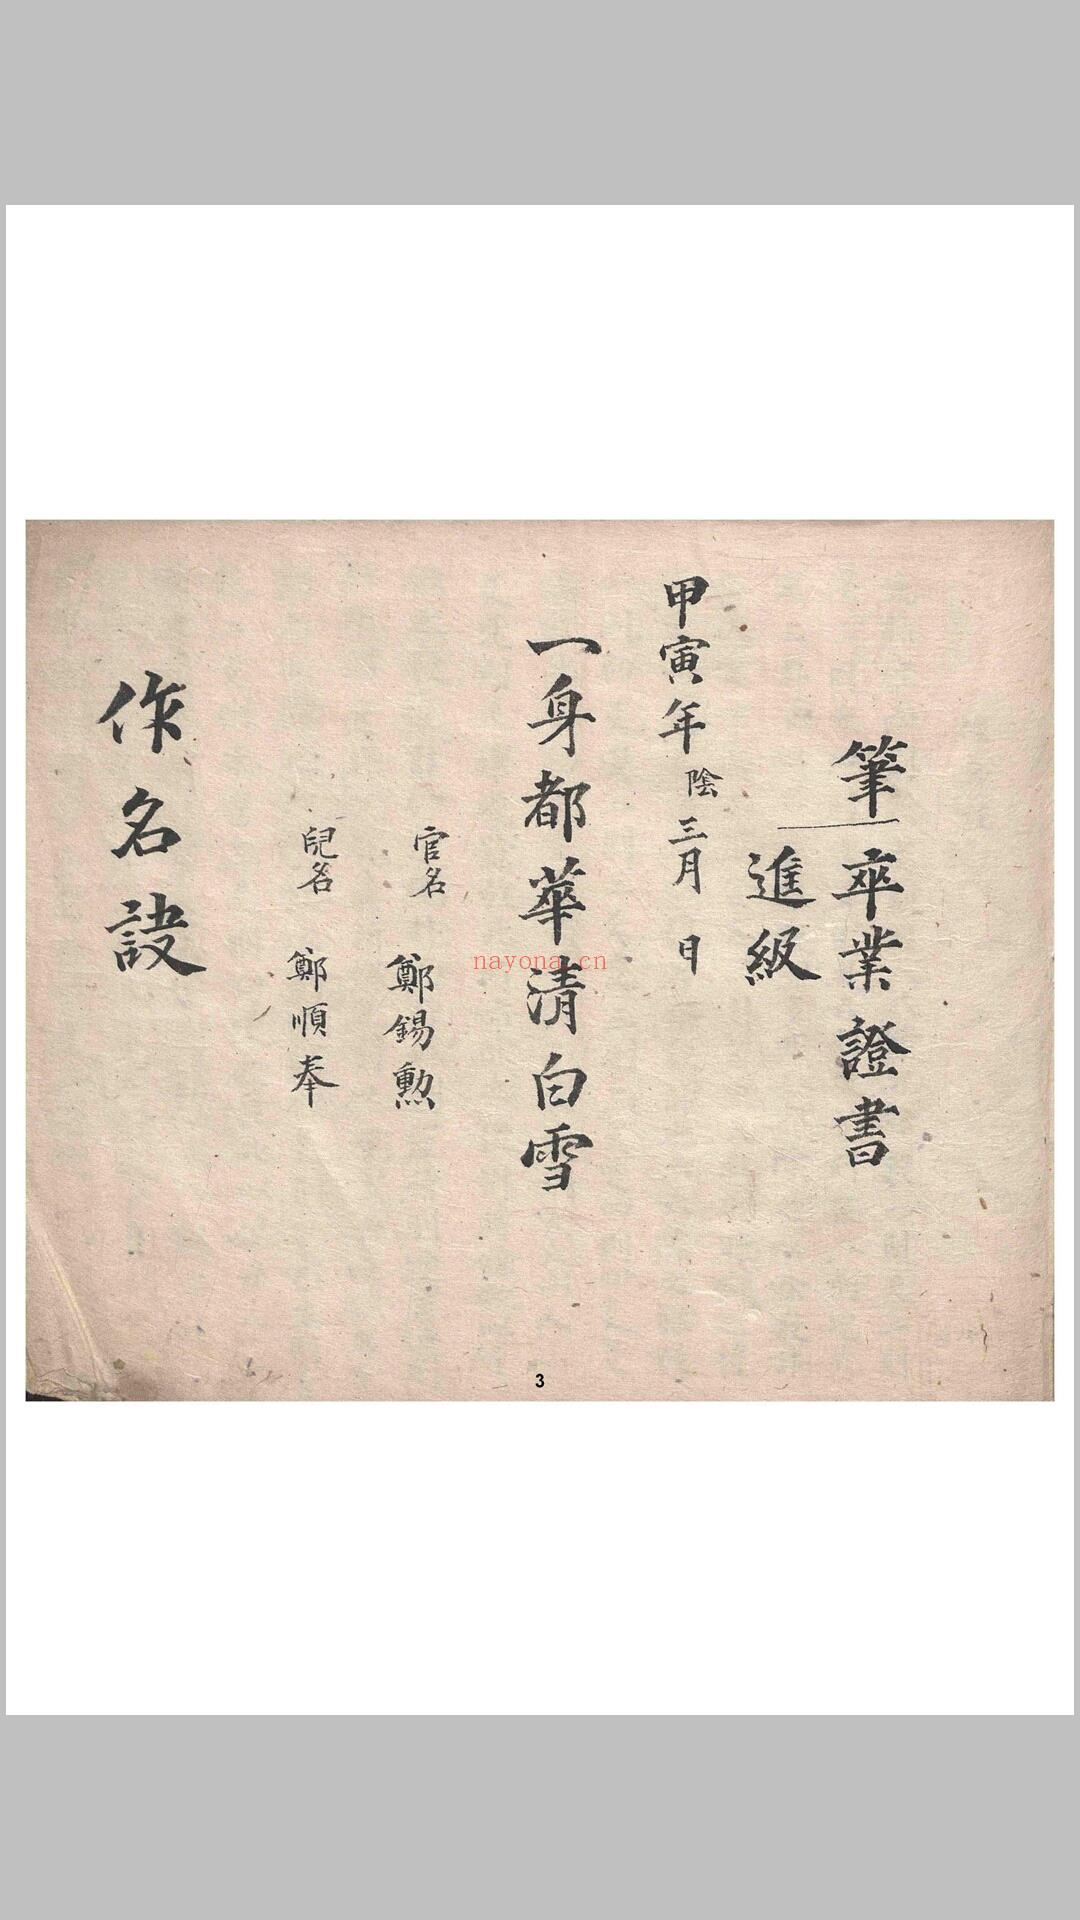 筆卒業證書
進級
甲寅年陰三月 日
一身都華清白雪
官名 鄭錫勲
兒名 鄭順奉
作名訣
nayona.cn
3